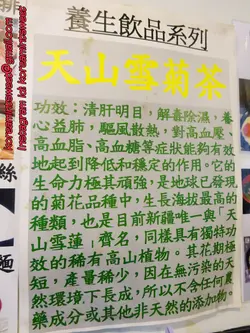 養生飲品系列
天山雪菊茶
功效：清肝明目，解毒除濕，養
心益肺，驅風散熱，對高血壓、
高血脂、高血糖等症狀能夠有效
地起到降低和穩定的作用。它的
生命力極其頑強，是地球已發現
的菊花品種中，生長海拔最高的
種類，也是目前新疆唯一與「天
山雪蓮」齊名，同樣具有獨特功
效的稀有高山植物。其花期極
短，產量稀少，因在無污染的天
然環境下長成，所以不含任何農
藥成分或其他非天然的添加物。
絲